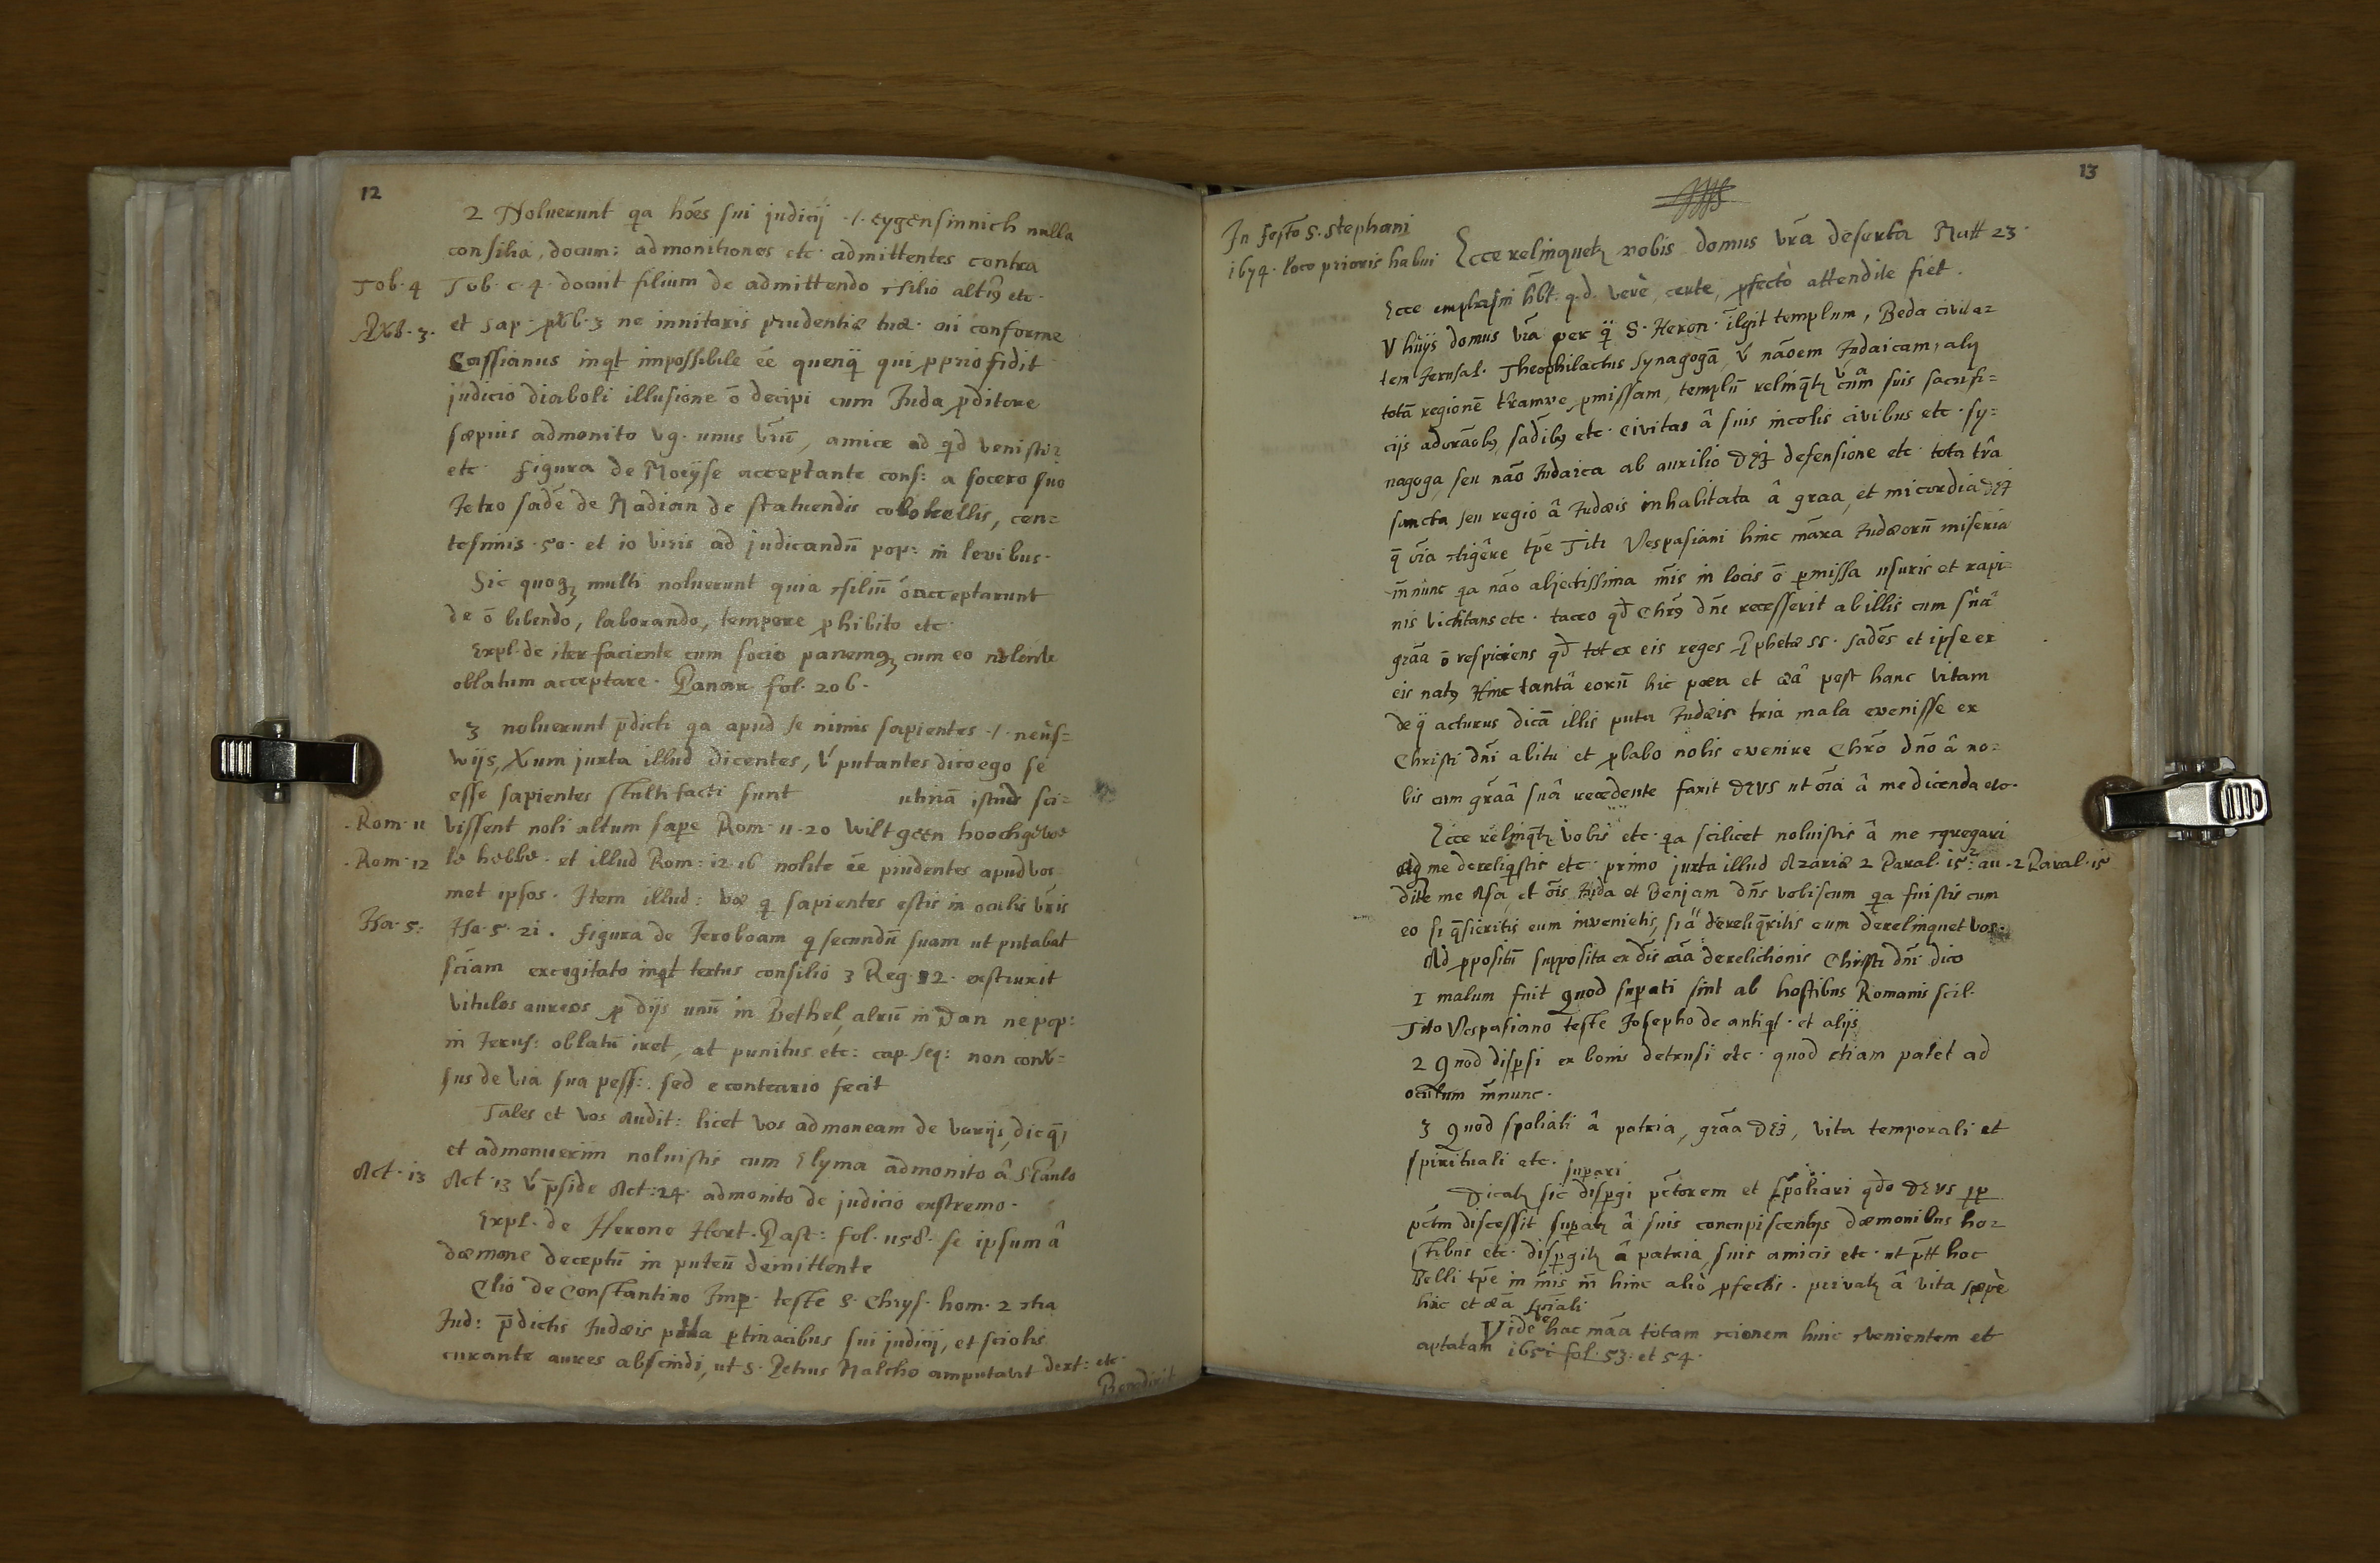 12
2 Noluerunt qa hoēs sui judicij ·/· eygensinnich nulla
consilia, docum: admonitiones etc· admittentes contra
Tob· 4 Tob· c· 4· docuit filium de admittendo ꝯsilio altiꝰ etc·
Prb· 3· et Sap· prb· 3 ne innitaris prudentiæ tuæ· cui conforme
Cassianus inqt impossibile ēe quenq̃ qui pprio fidit
judicio diaboli illusione ō decipi cum Juda pditore
sæpius admonito vg· unus vrū, amice ad qd venisti?
etc· figura de Moeÿse acceptante cons: a socero suo
Jetro sadē de Madian de statuendis colokellis, cen=
tesimis· 50· et 10 viris ad judicandū pop: in levibus·
Sic quoqꝫ multi noluerunt quia ꝯsiliū ō acceptarunt
de ō bibendo, laborando, tempore phibito etc·
Expl· de iter faciente cum socio panemqꝫ cum eo nolente
oblatum acceptare· Panar fol· 206·
3 noluerunt p̄dicti qa apud se nimis sapientes ·/· neüs=
wijs, Xum juxta illud dicentes, v́ putantes dico ego se
esse sapientes stulti facti sunt utinā istud sci=
·Rom· 11 vissent noli altum sape Rom· 11· 20 wilt geen hoochgevoe
·Rom· 12 le hebbe· et illud Rom: 12· 16 nolite ēe prudentes apud vos
met ipsos· Item illud: væ q sapientes estis in oculis vr̄is
Isa· 5: Isa· 5· 21· figura de Jeroboam q secundū suam ut putabat
sciam excogitato inqt textus consilio 3 Reg· 12· exstruxit
vitulos aureos p dijs unū in Bethel, alrū in Dan ne pop:
in Jerus: oblatū iret, at punitus etc: cap· seq: non conv=
sus de via sua pess:· sed e contrario fecit
Tales et vos Audit: licet vos admoneam de varijs, dicq̄,
et admonuerim noluistis cum Elyma admonito â S Paulo
Act· 13 Act· 13 v́ p̄side Act: 24· admonito de judicio exstremo·
Expl· de Herone Hort· Past: fol· 1158· se ipsum â
dæmone deceptū in puteū demittente
Clio de Constantino Imp· teste S· Chrys· hom· 2 ꝯtra
Jud: p̄dictis Judæis ptinacibus sui judicij, et sciolis
curante aures abscindi, ut S· Petrus Malcho amputavit dext: etc·
Benedixit
13
In festo S· Stephani
1674· loco prioris habui
Ecce relinquetꝫ vobis domus vrā deserta Matt 23·
Ecce emphasin hbt· q·d· verè, certe, pfectò attendite fiet·
V huÿs domus vrā per q̄ S· Heron· īlgit templum, Beda civita=
tem Jerusal· Theophilactus synagogā, v́ nāoem Judaicam, alij
totā regionē tramve pmissam, templū relinq̄tꝫ cum suis sacrifi=
cijs adorāobꝰ, sadībꝰ etc· civitas â suis incolis civibus etc· sy=
nagoga seu nāo Judaica ab auxilio DEI defensione etc· tota trā
sancta seu regio â Judæis inhabitata â graa, et micordia DEI
q̄ oīa ꝯtigêre tpē Titi Vespasiani hinc māxa Judæorū miseria
m̄nunc qa nāo abjectissima m̄is in locis ō pmissa usuris et rapi=
nis victitans etc· taceo qđ Chrꝰ dn̄s recesserit ab illis cum suâ
grāa ō respiciens qđ tot ex eis reges Pphetæ ss· sadēs et ipse ex
eis natꝰ Hinc tantâ eorū hic pœna et æâ post hanc vitam
de q̄ acturus dicā illis puta Judæis tria mala evenisse ex
Christi dn̄i abitu et pbabo nobis evenire Chrō dn̄o â no=
bis cum grāâ suâ recedente faxit DEVS ut oīa â me dicenda etc·
Ecce relinq̄tꝫ vobis etc· qa scilicet noluistis â me ꝯgregari
me dereliqstis etc· primo juxta illud Azariæ 2 Paral· 15· 2: au -2 Paral· 15
dite me Asa, et oīs Juda et Benjam dn̄s vobiscum qa fuistis cum
eo si q̄sieritis eum invenietis, si ā dereliq̄ritis eum derelinquet vos·
Ad ppositū supposita ex dīs cāā derelictionis Christi dn̄i dico
1 malum fuit quod supati sint ab hostibus Romanis scil·
Tito Vespasiano teste Josepho de antiqt· et alijs
2 Quod dispsi ex bonis detrusi etc· quod etiam patet ad
oculum m̄nunc·
3 Quod spoliati â patria, grāa DEI, vita temporali et
spirituali etc· supari
Dicatꝫ sic dispgi pctorem et spoliari qdo DEVS pp
pctm discessit supatꝫ â suis concupiscentijs dæmonibus ho=
stibus etc· dispgitꝫ â patria, suis amicis etc· ut ptt hoc
Belli tpē in m̄is m̄ hinc aliò pfectis· privatꝫ â vita sæpè
hic et æā spiali
Vide de hac māa totam ꝯcionem hinc ꝯvenientem et
aptatam 1651 fol· 53· et 54·